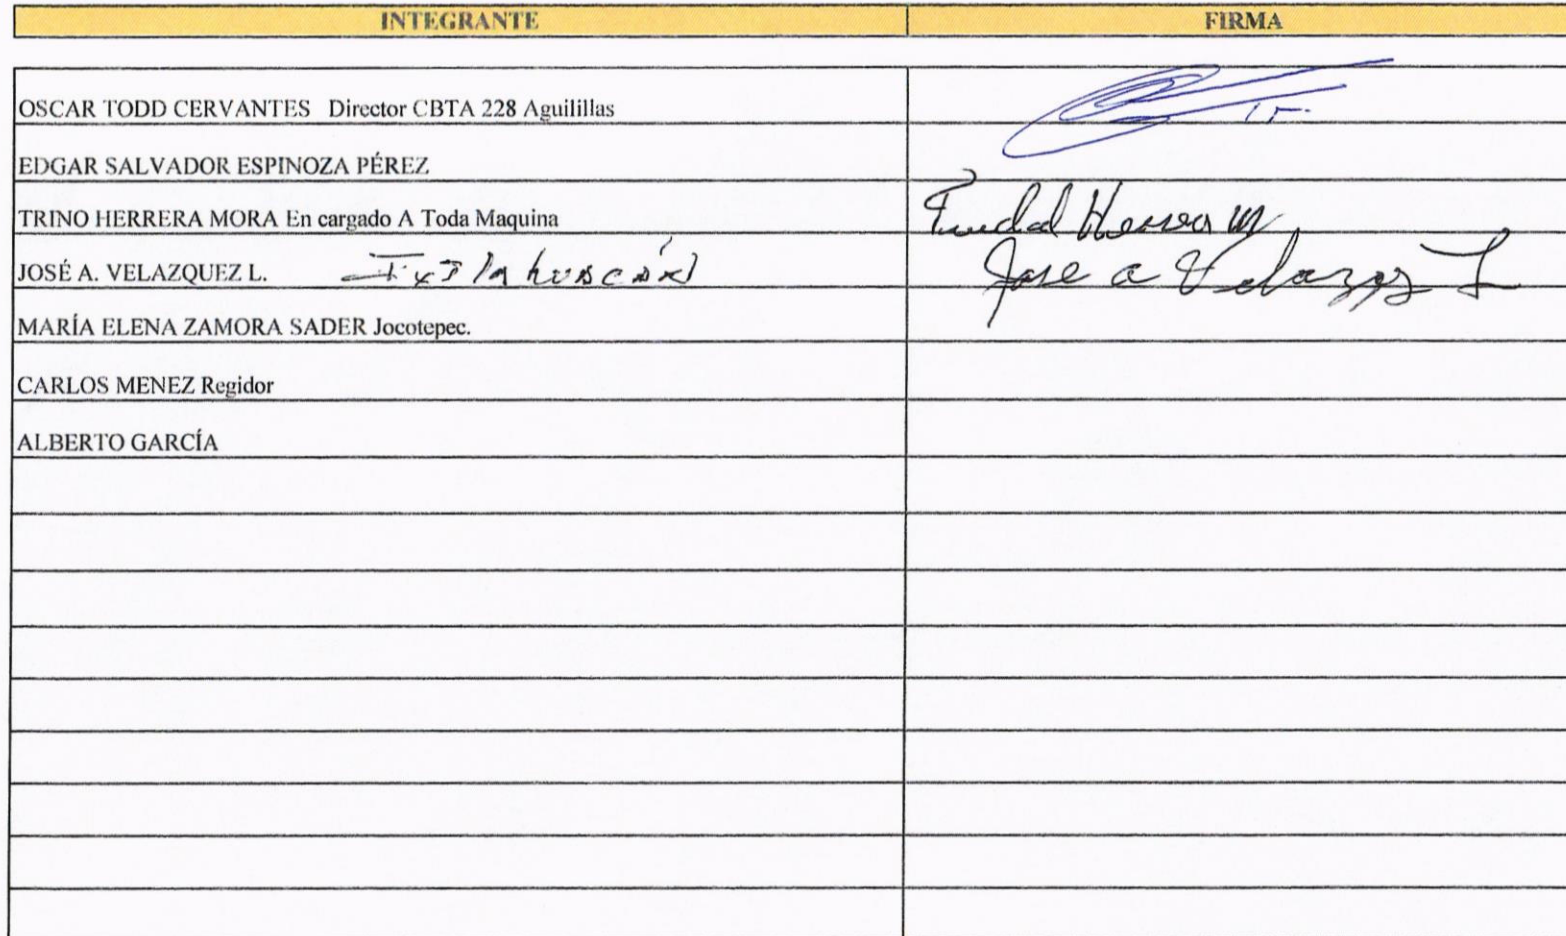 INTEGRANTE FIRMA
OSCAR TODD CERVANTES Director CBTA 228 Aguilillas
EDGAR SALVADOR ESPINOZA PÉREZ
TRINO HERRERA MORA En cargado A Toda Maquina Herrera M
JOSÉ A. VELAZQUEZ L. Ixtlahuacán Jose a Velazqz L
MARÍA ELENA ZAMORA SADER Jocotepec.
CARLOS MENEZ Regidor
ALBERTO GARCÍA